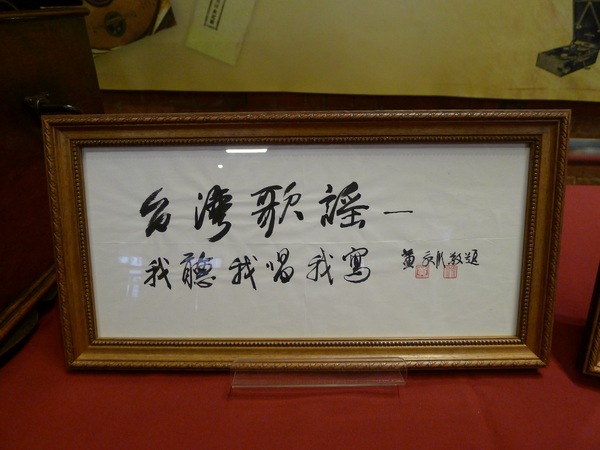 台灣歌謠—
我聽我唱我寫
黃敬題